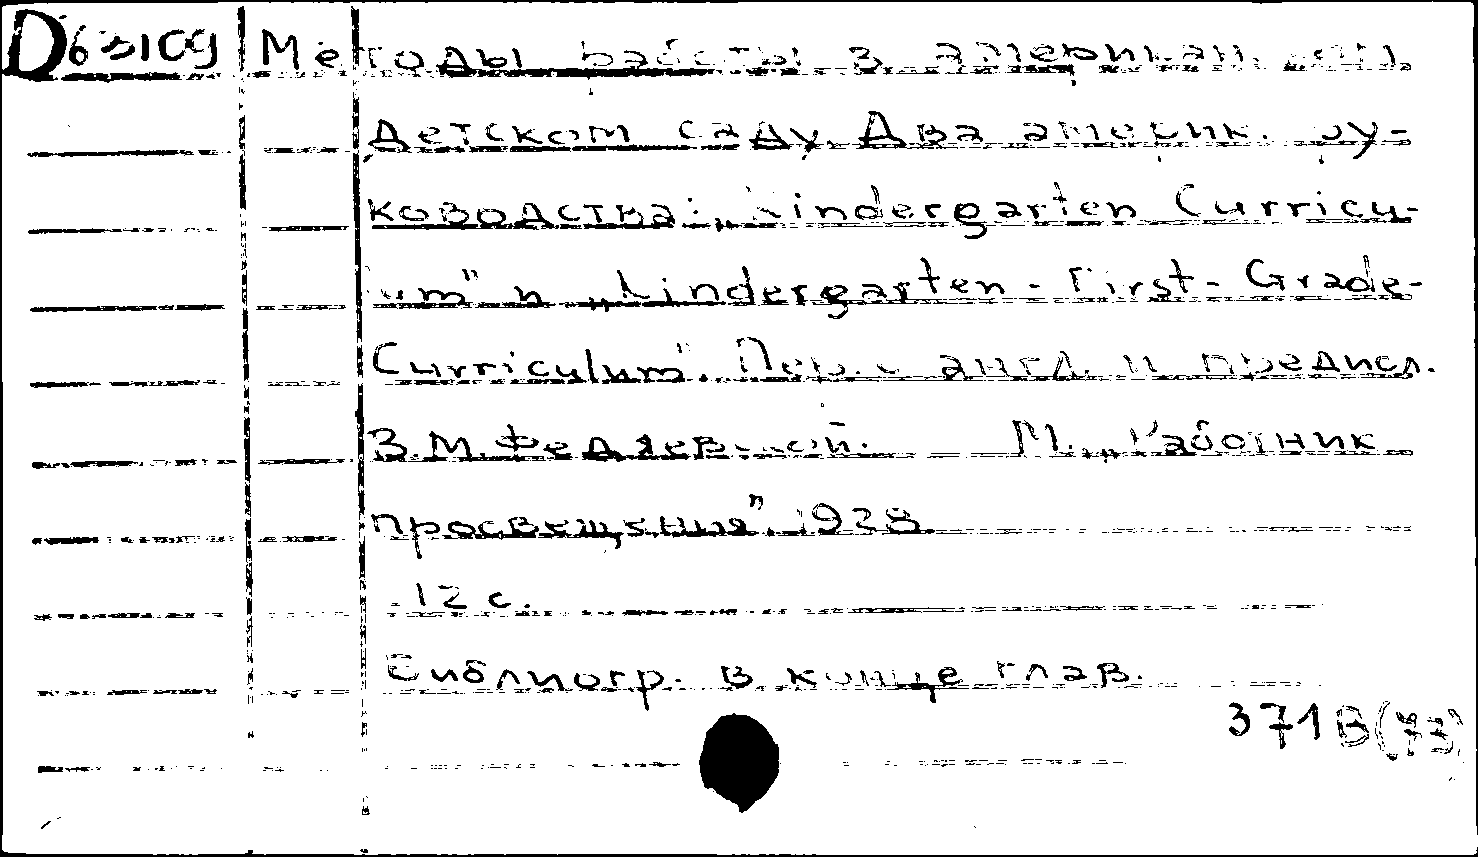 D63109 Методы работы в американ.
детском саду. Два америк. ру-
ководства: „Kindergarten Curricu-
lum" и „Kindergarten-First-Grade-
Curriculum". Пер. с англ. и предисл.
З.М.Федяевской. М., „Работник
просвещения", 1928.
12 с.
Библиогр. в конце глав.
371В(73)